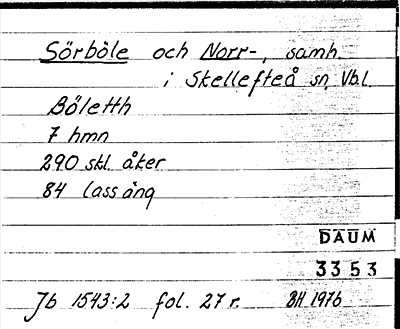 Sörböle och Norr-, samh.
i Skellefteå sn, Vb.l.
Böletth
7 hmn
290 skl. åker
84 lass äng
DAUM
3353
Jb 1543:2 fol. 27 r. BH 1976